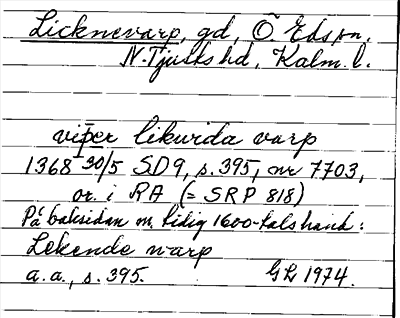 Licknevarp, gd, Ö. Edsn.
N. Tjusts hd, Kalm. l.
vip̄er likurida varp
1368 30/5 SD 9, s. 395, nr 7703,
or. i RA (= SRP 818)
På baksidan m. tidig 1600-talshand:
Lekende warp
a.a., s. 395. GL 1974.